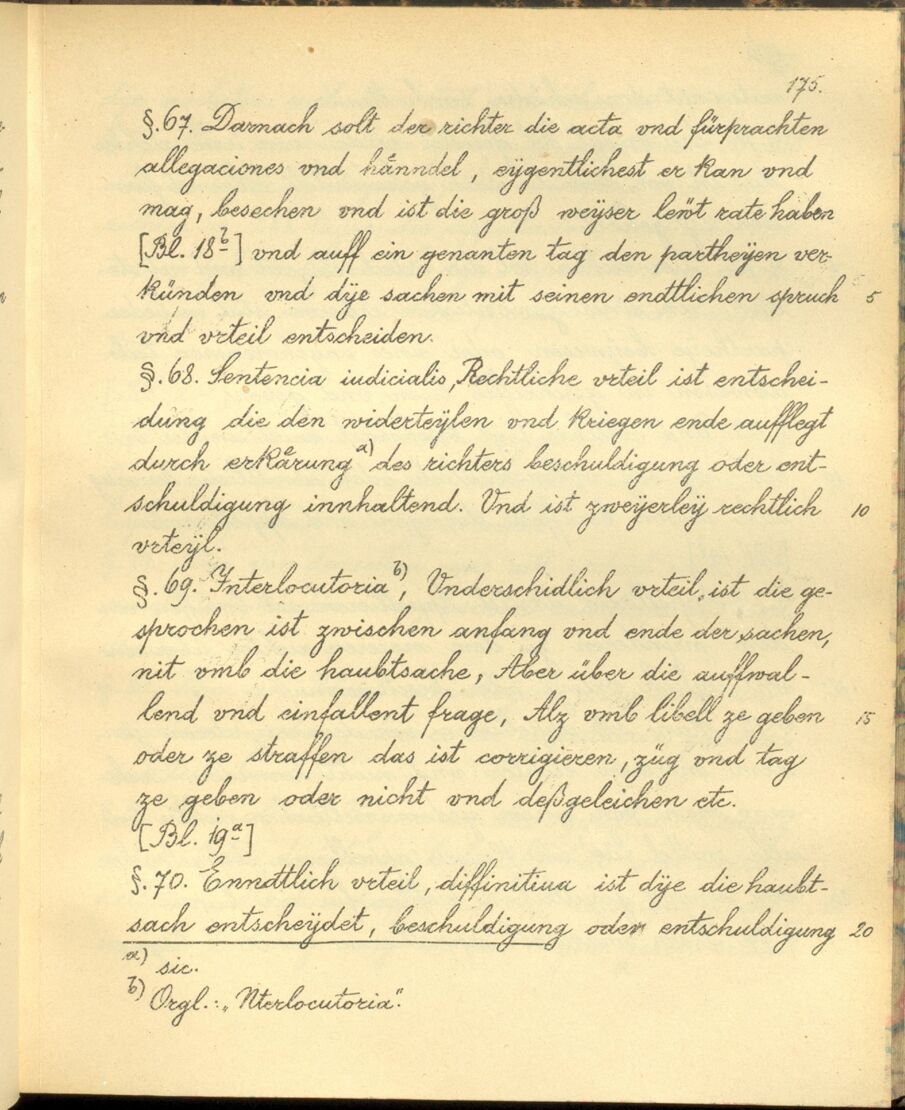 175.
§. 67. Darnach solt der richter die acta vnd fürprachten
allegaciones vnd hånndel, eÿgentlichest er kan vnd
mag, besechen vnd ist die groß weÿser lewt rate haben
[Bl. 18ᵇ] vnd auff ein genanten tag den partheÿen ver-
künden vnd dÿe sachen mit seinen endtlichen spruch 5
vnd vrteil entscheiden.
§. 68. Sentencia iudicialis, Rechtliche vrteil ist entschei-
dung die den widerteÿlen vnd kriegen ende aufflegt
durch erkårung ᵃ⁾ des richters beschuldigung oder ent-
schuldigung innhaltend. Vnd ist zweÿerleÿ rechtlich 10
vrteÿl.
§. 69. Interlocutoria ᵇ⁾, Vnderschidlich vrteil, ist die ge-
sprochen ist zwischen anfang vnd ende der sachen,
nit vmb die haubtsache, Aber über die auffwal-
lend vnd einfallent frage, Alz vmb libell ze geben 15
oder ze straffen das ist corrigieren, züg vnd tag
ze geben oder nicht vnd deßgeleichen etc.
[Bl. 19ᵃ]
§. 70. Enndtlich vrteil, diffinitiua ist dÿe die haubt-
sach entscheÿdet, beschuldigung oder entschuldigung 20
a) sic.
b) Orgl.: „Nterlocutoria".